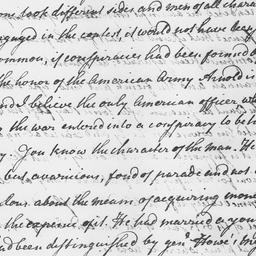 ome took different sides and men of all chara
ngaged in the contest, it would not have been
ommon, if conspiracies had been formed b
the honor of the American Army Arnold is
nd I believe the only American officer wh
the war entered into a conspiracy to bet
You know the character of the man. He
but avaricious, fond of parade and not
about the means of acquiring mon
the expense of it. He had married a you
had been distinguished by gen.l Howe's